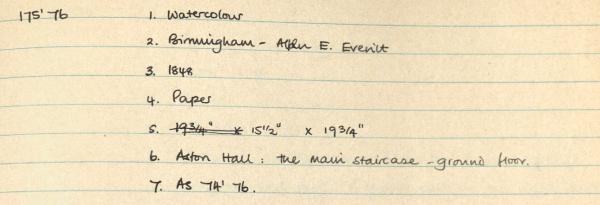 175' 76 1. Watercolour
2. Birmingham - Allen E. Everitt
3. 1848
4. Paper
5. 19 3/4" x 15 1/2" x 19 3/4"
6. Aston Hall : the main staircase - ground floor.
7. As 74' 76.